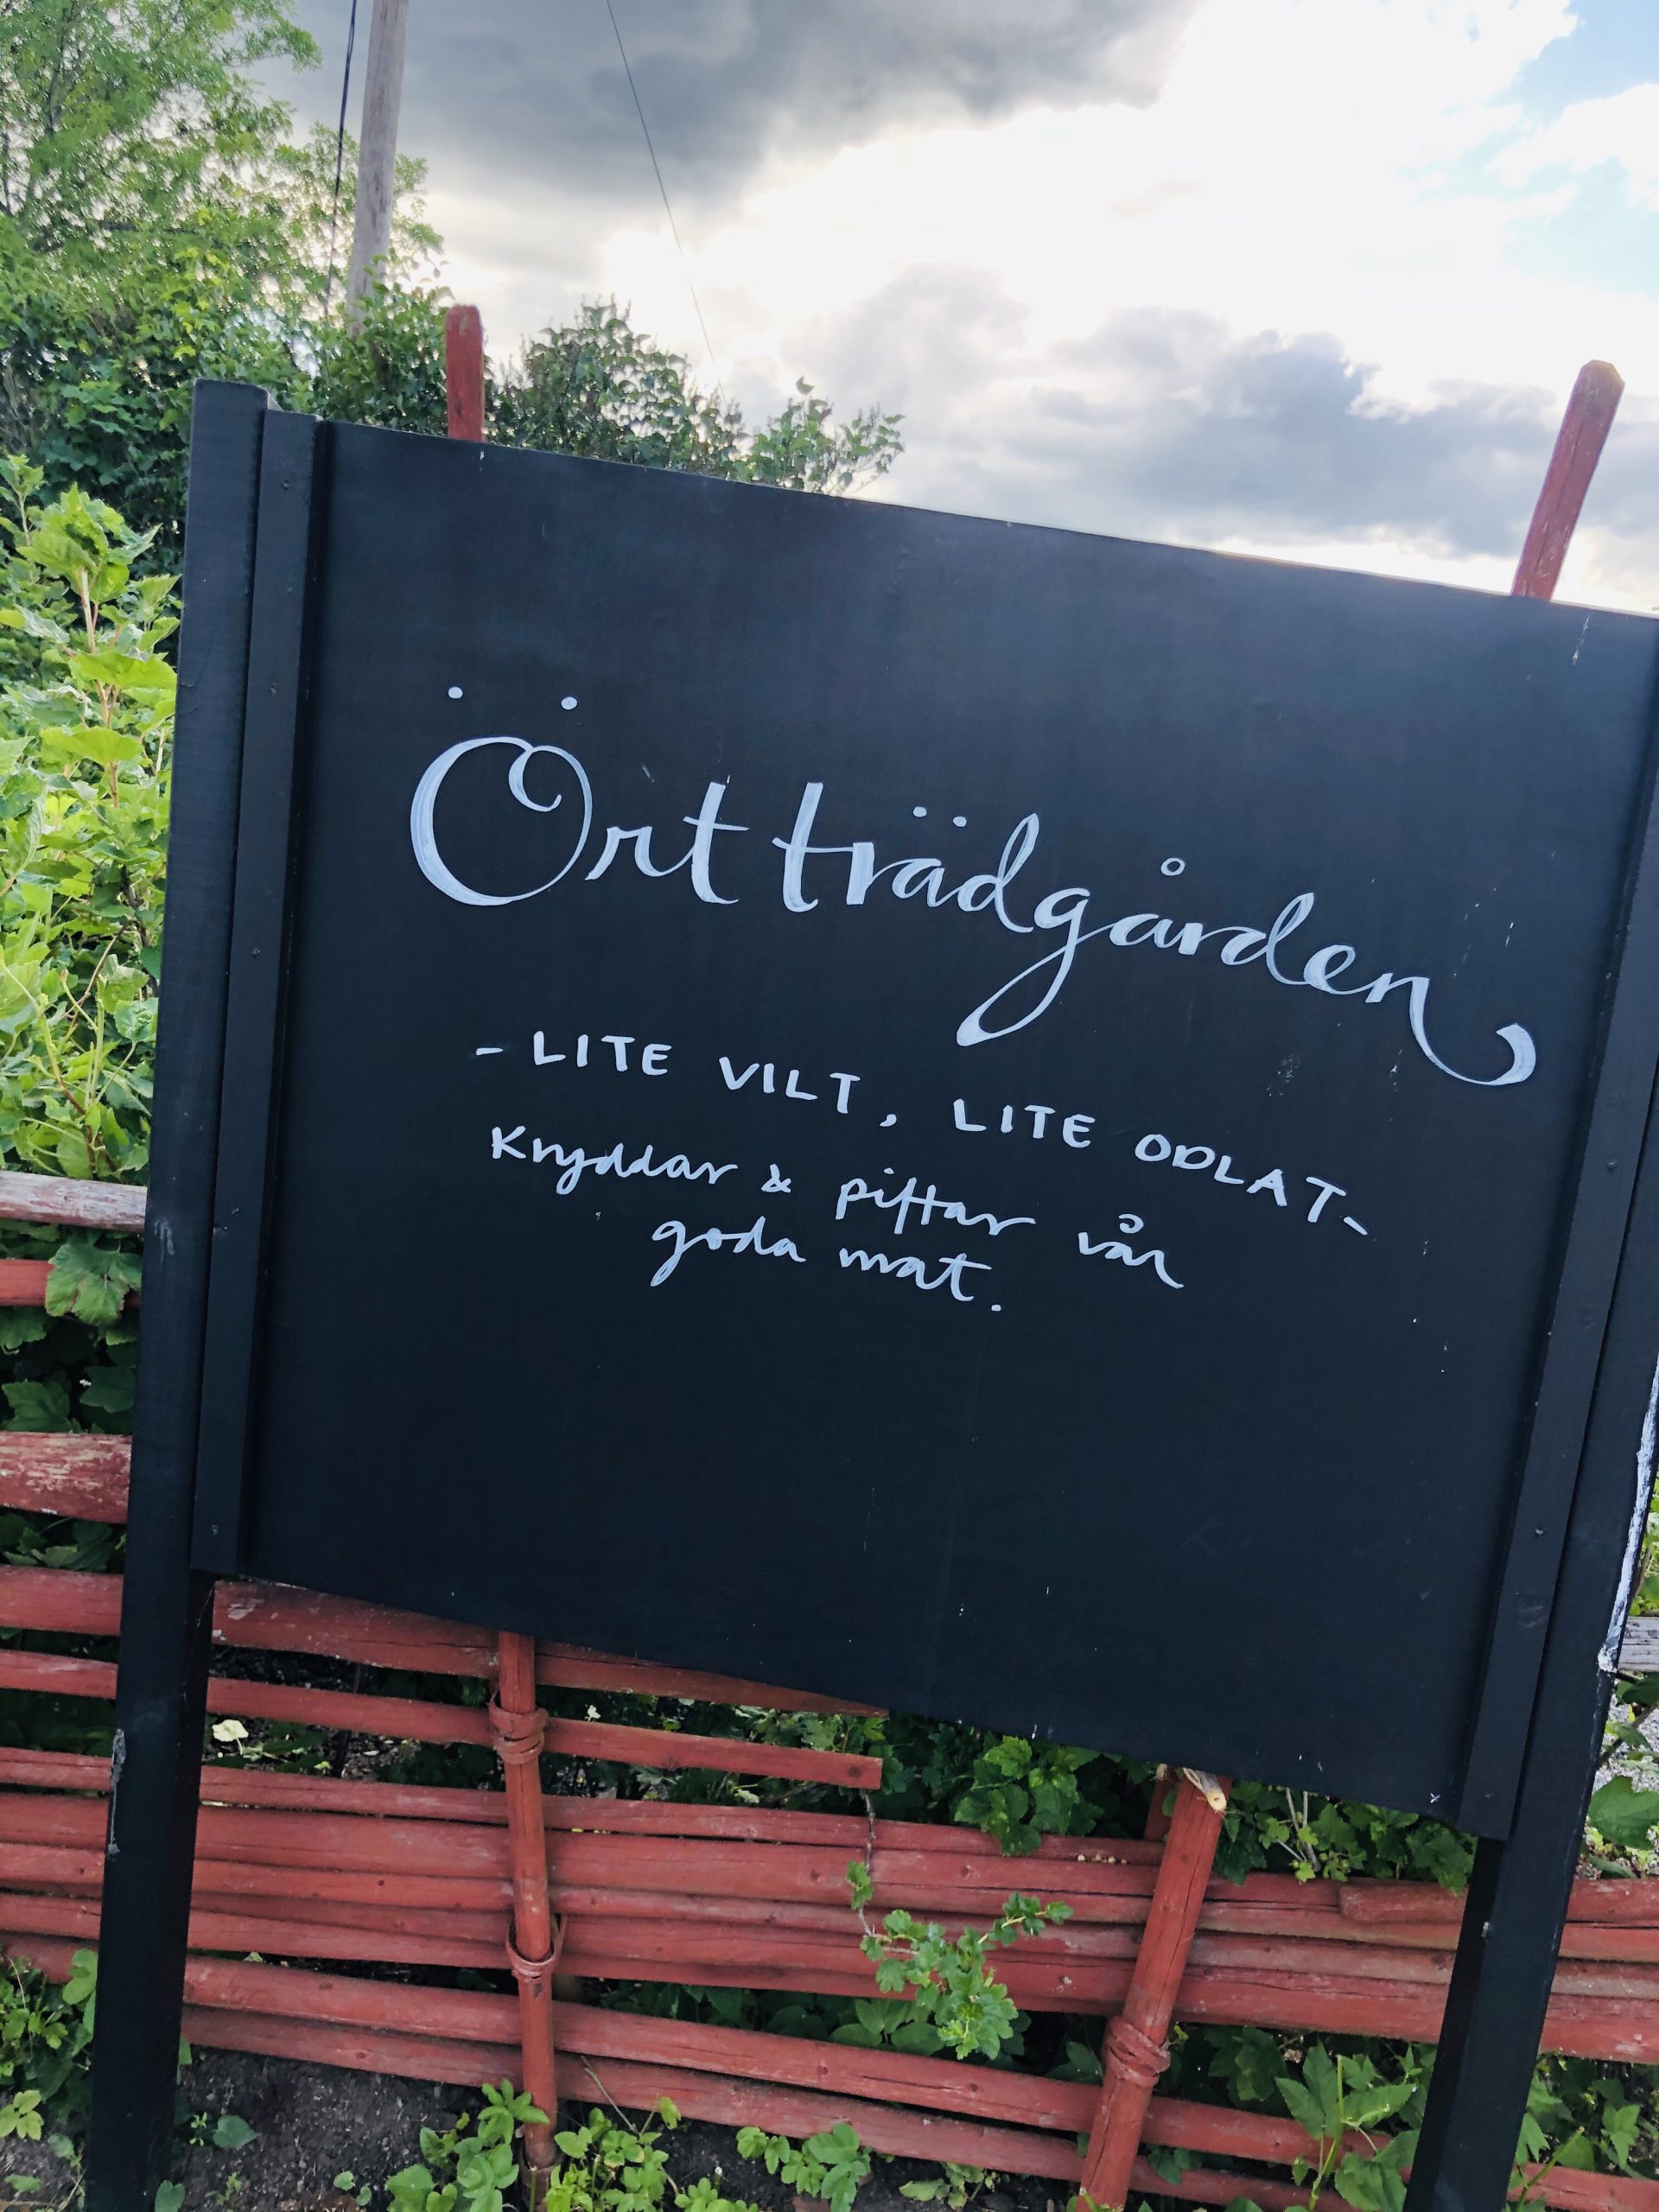 Örtträdgården
- LITE VILT, LITE ODLAT-
Kryddar & piftar vår
goda mat.